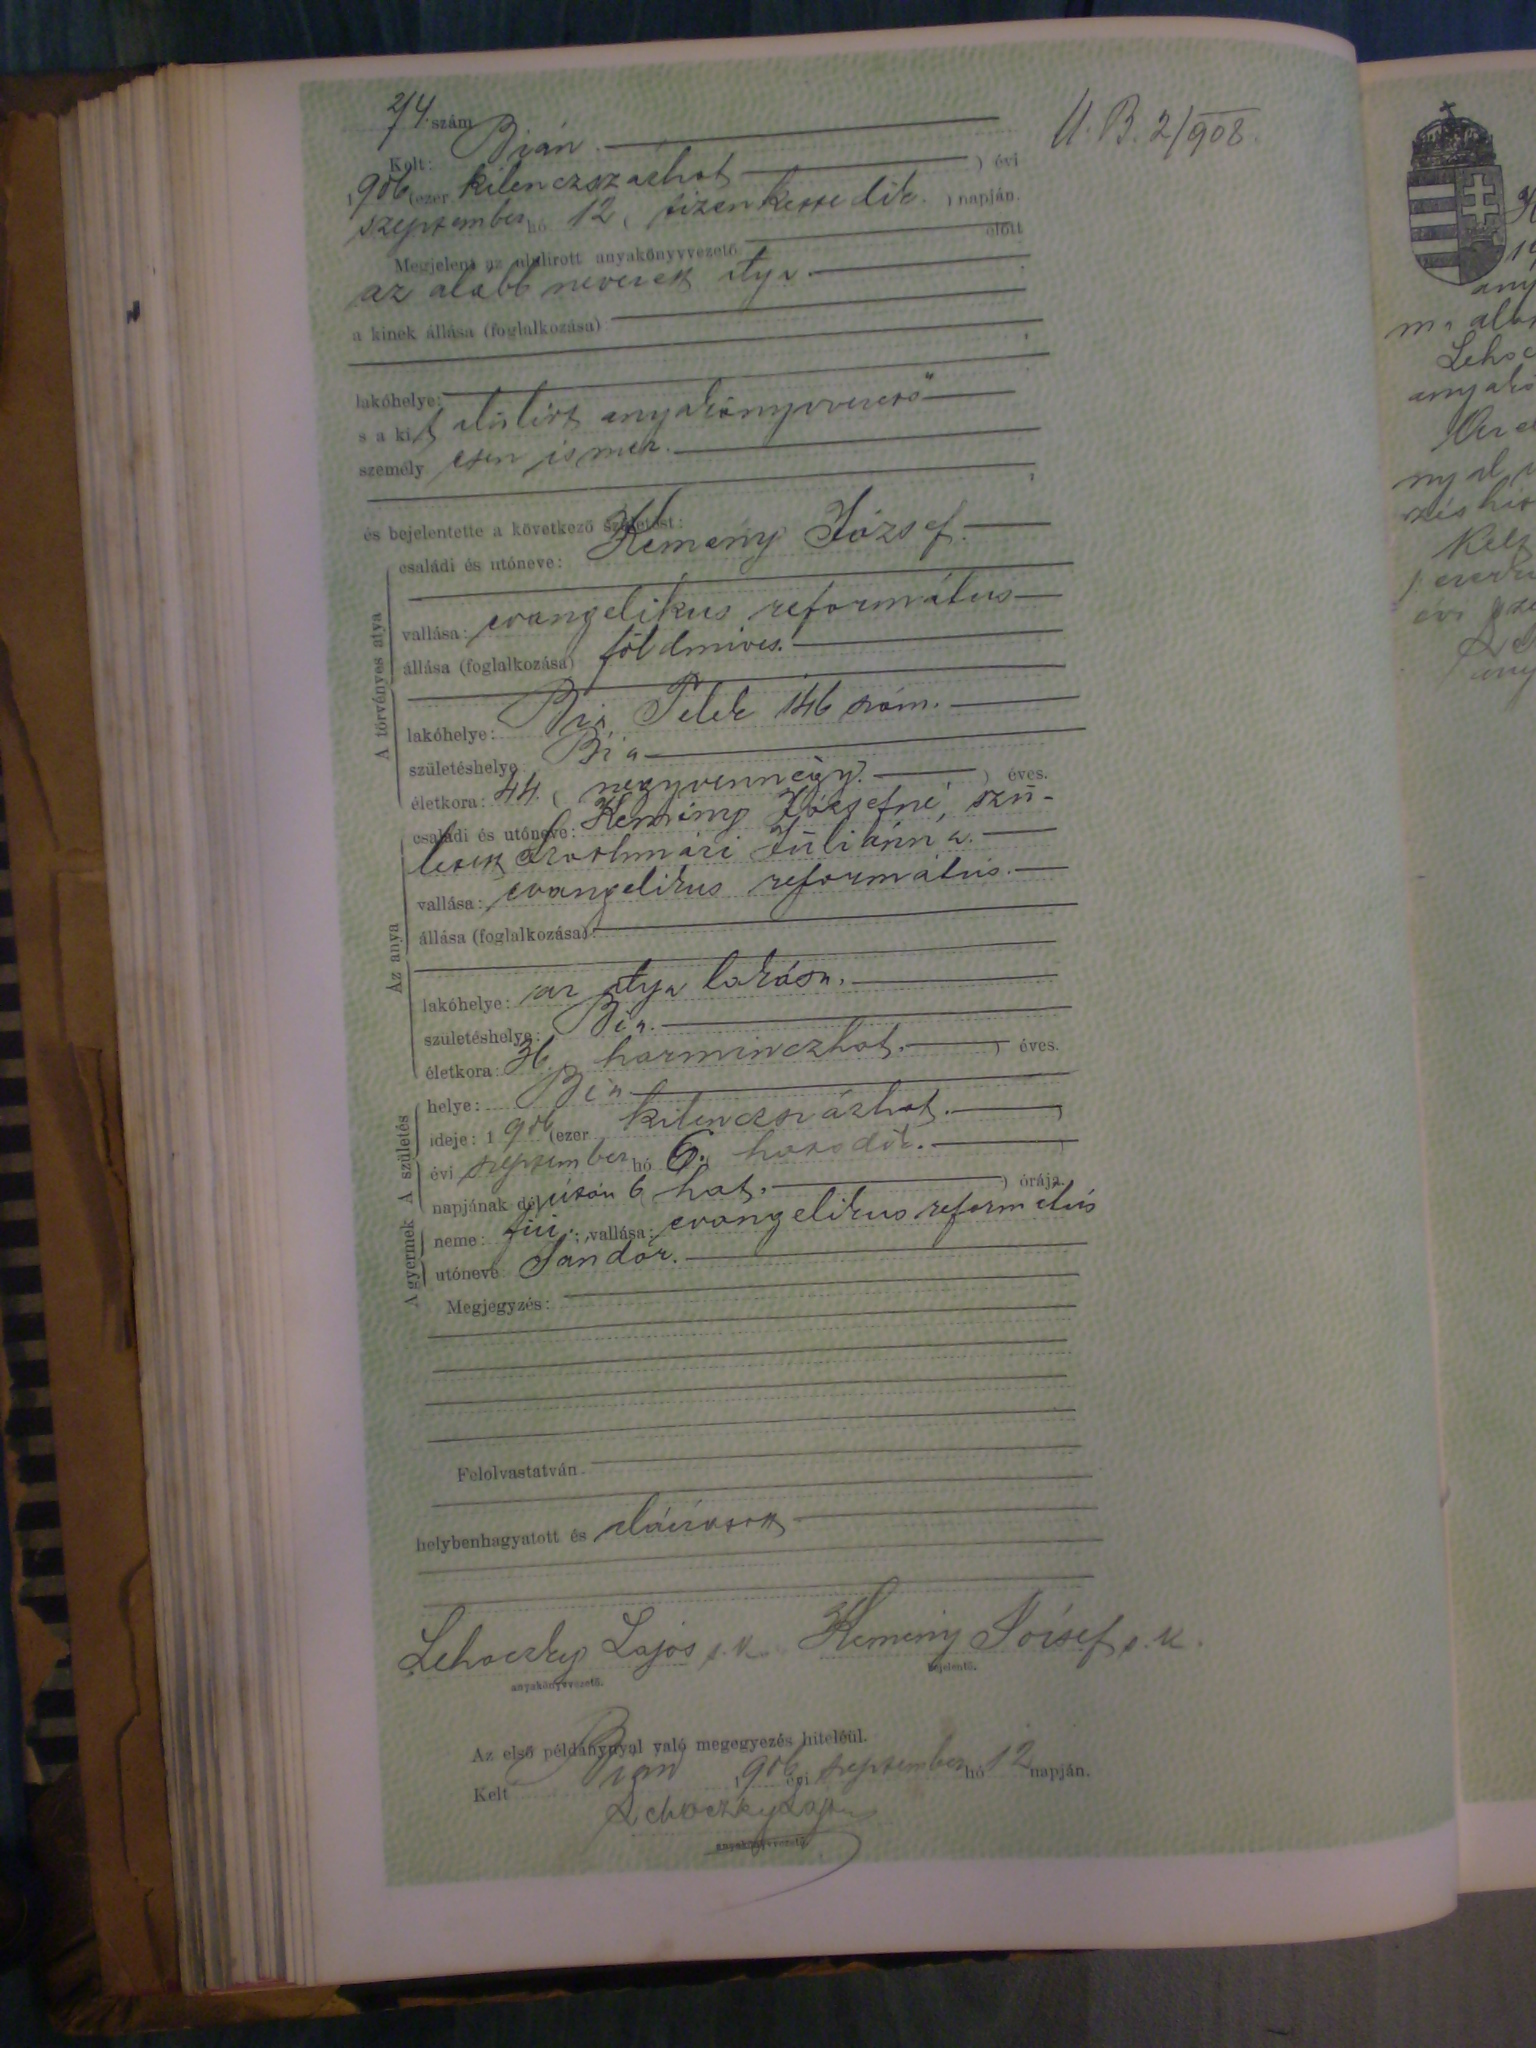 214. szám
U. B. 2/908.
Kelt: Bián.
1906 (ezer kilenczszázhat ) évi
szeptember hó 12. ( tizenkettedik. ) napján.
Megjelent az alulirott anyakönyvvezető előtt
az alább nevezett atya
a kinek állása (foglalkozása)
lakóhelye:
s a kit alulirt anyakönyvvezető
személy esen ismer.
és bejelentette a következő születést:
A törvényes atya
családi és utóneve: Kemény József.
vallása: evangelikus református
állása (foglalkozása) földmives.
lakóhelye: Bia Telek 146 szám.
születéshelye Bia
életkora: 44. ( negyvennégy. ) éves.
Az anya
családi és utóneve: Kemény Józsefné, szü-
letett Juliánna.
vallása: evangelikus református.
állása (foglalkozása):
lakóhelye: az atya lakása.
születéshelye: Bia.
életkora: 36 ( harminczhat. ) éves.
A születés
helye: Bia
ideje: 1906 (ezer kilenczszázhat. )
évi szeptember hó 6. ( hatodik. )
napjának délután 6 ( hat. ) órája.
A gyermek
neme: fiú.; vallása: evangelikus református
utóneve Sándor.
Megjegyzés:
Felolvastatván
helybenhagyatott és aláiratott
Lehoczky Lajos s. k. Kemény József s. k.
anyakönyvvezető. bejelentő.
Az első példánynyal való megegyezés hiteléül.
Kelt Bián 1906 évi szeptember hó 12 napján.
Lehoczky Lajos
anyakönyvvezető.